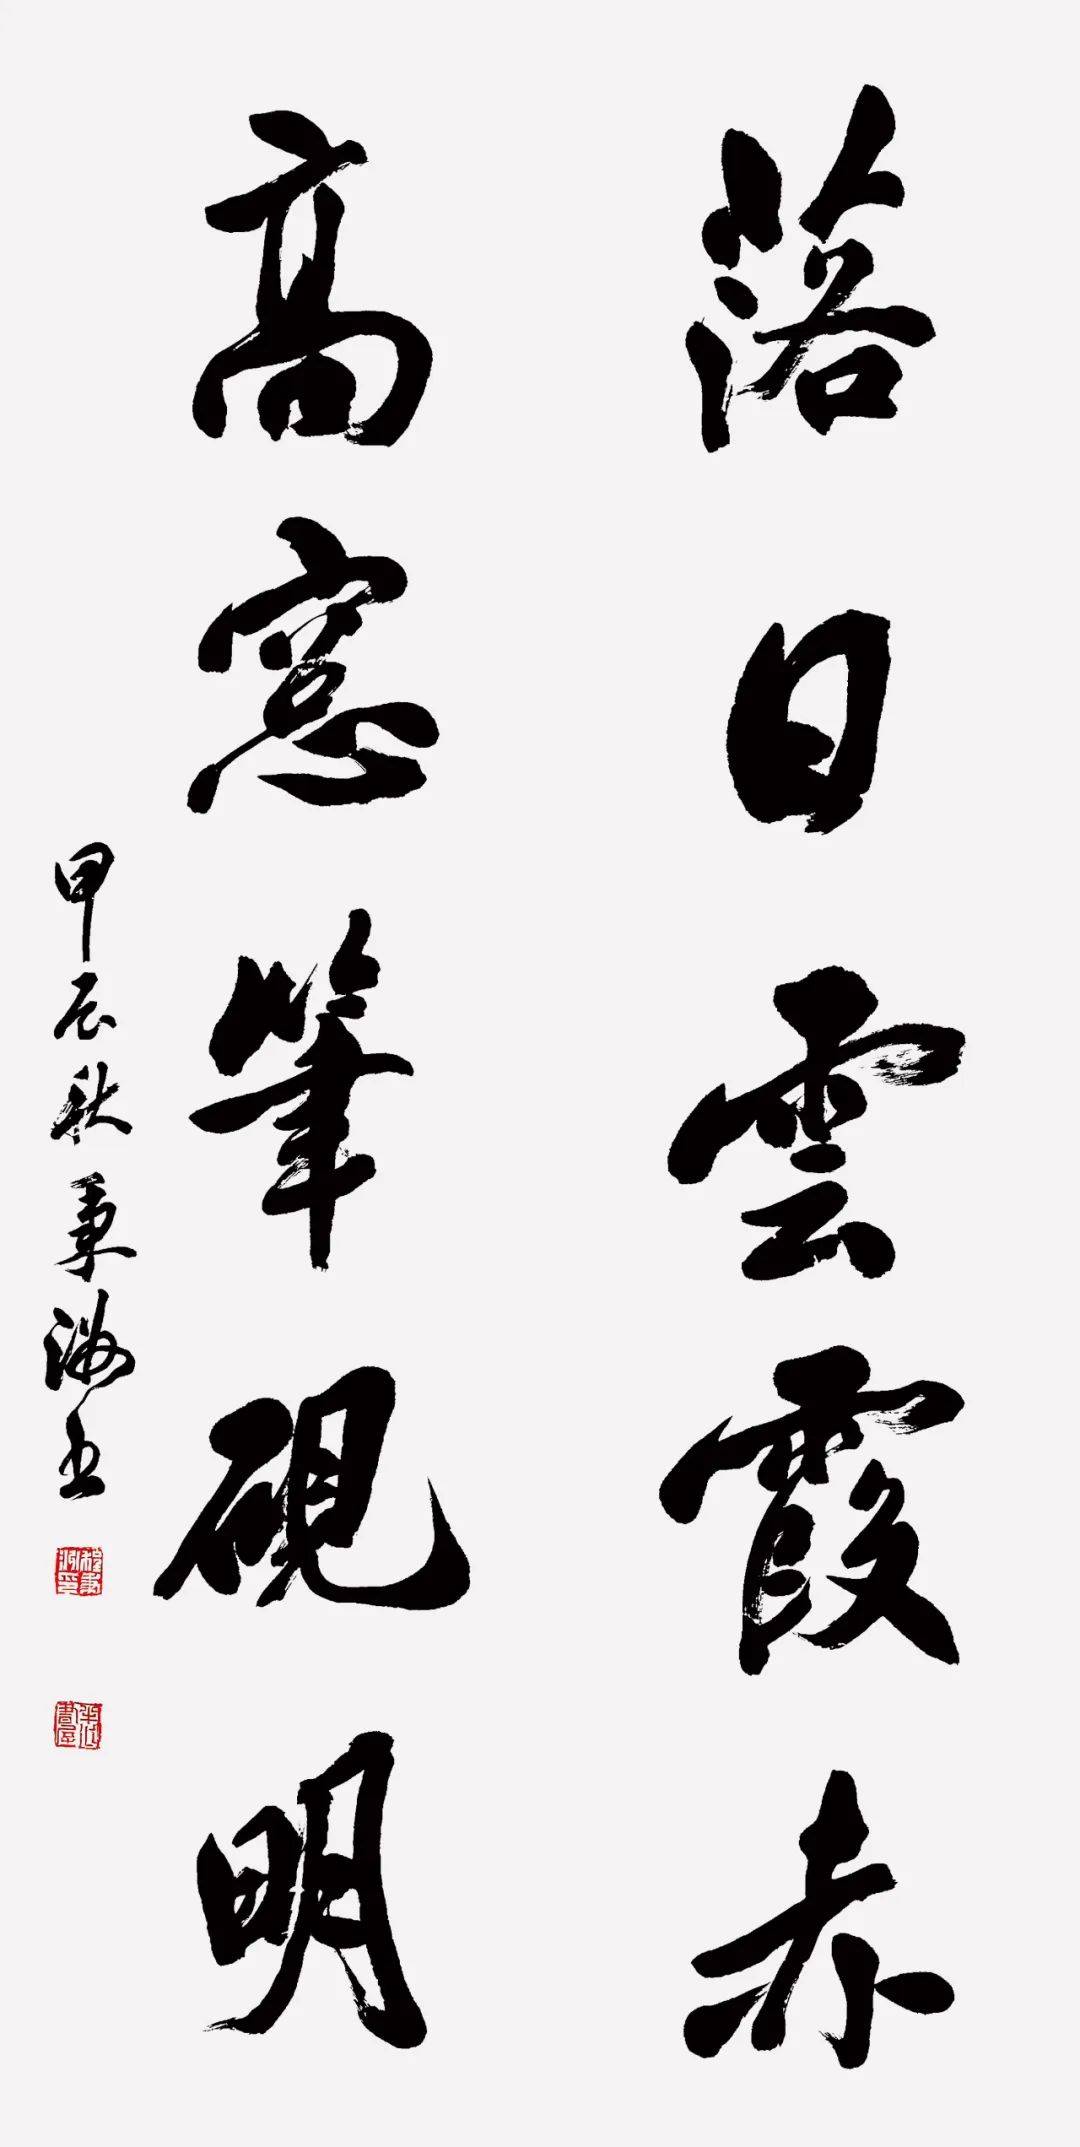 落日雲霞赤
高窓筆硯明
甲辰秋秉海书